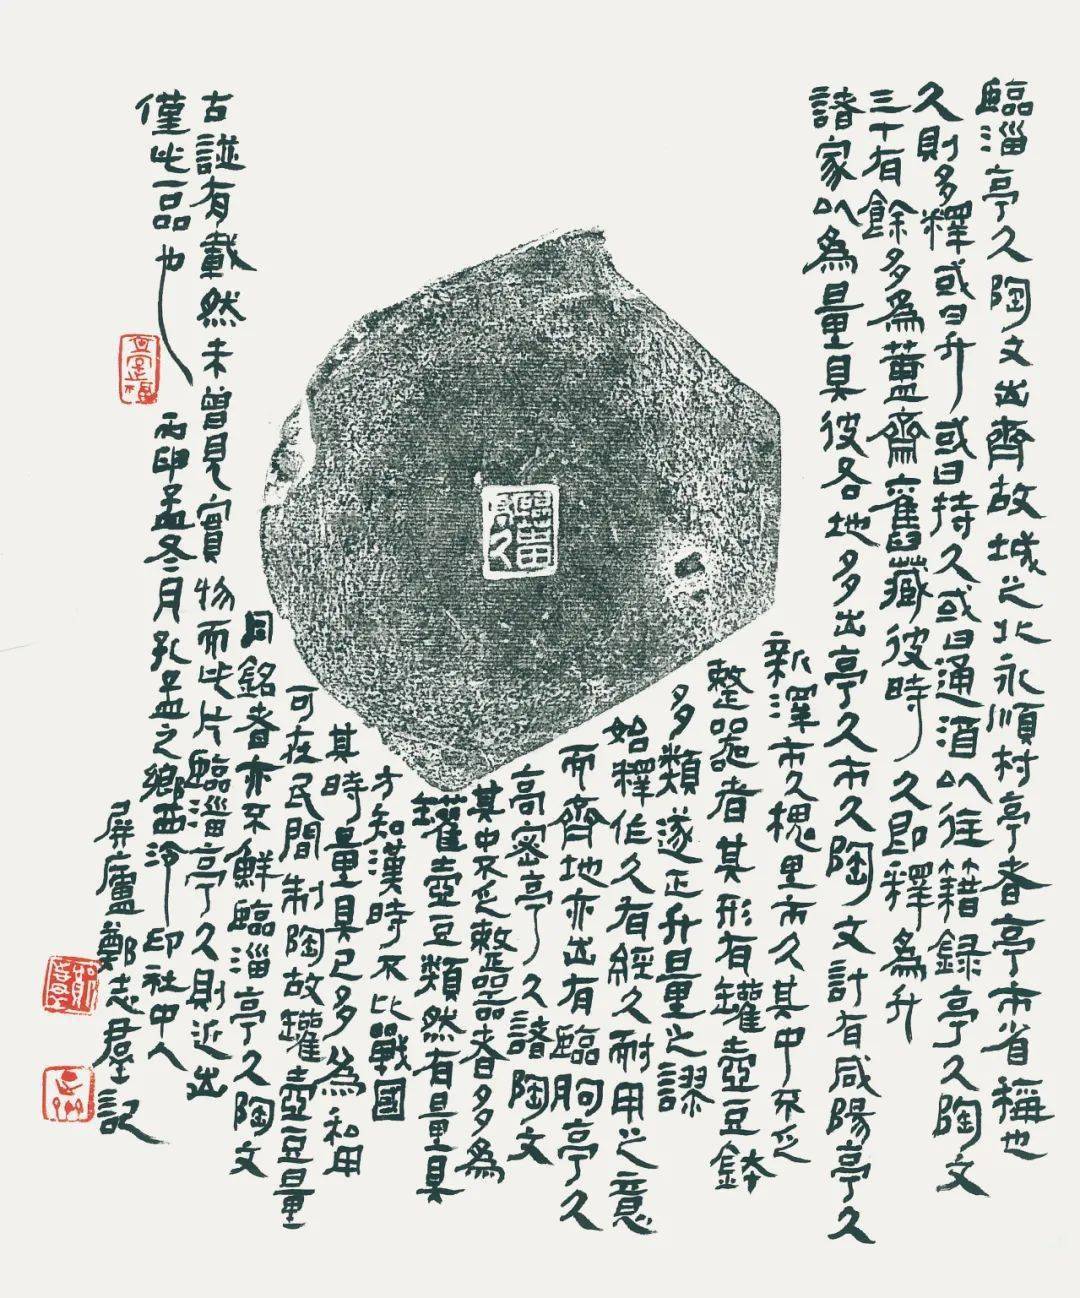 臨淄亭久陶文出齊故城之北永順村亭者亭市省稱也
久則多釋或曰升或曰持久或曰通酒以往籍録亭久陶文
三十有餘多為簠齋舊藏彼時久即釋為升
諸家以為量具彼各地多出亭久市久陶文計有咸陽亭久
新澤市久槐里市久其中不乏
整器者其形有罐壺豆鉢
多類遂正升量之謬
始釋作久有經久耐用之意
而齊地亦出有臨朐亭久
高密亭久諸陶文
其中不乏整器者多為
罐壺豆類然有量具
方知漢時不比戰國
其時量具已多為私用
可在民間制陶故罐壺豆量
同銘者亦不鮮臨淄亭久陶文
古謎有載然未曾見實物而此片臨淄亭久則近出
僅此一品也
丙申孟冬月於孔孟之鄉西泠印社中人
屏廬鄭志群記
臨淄亭久